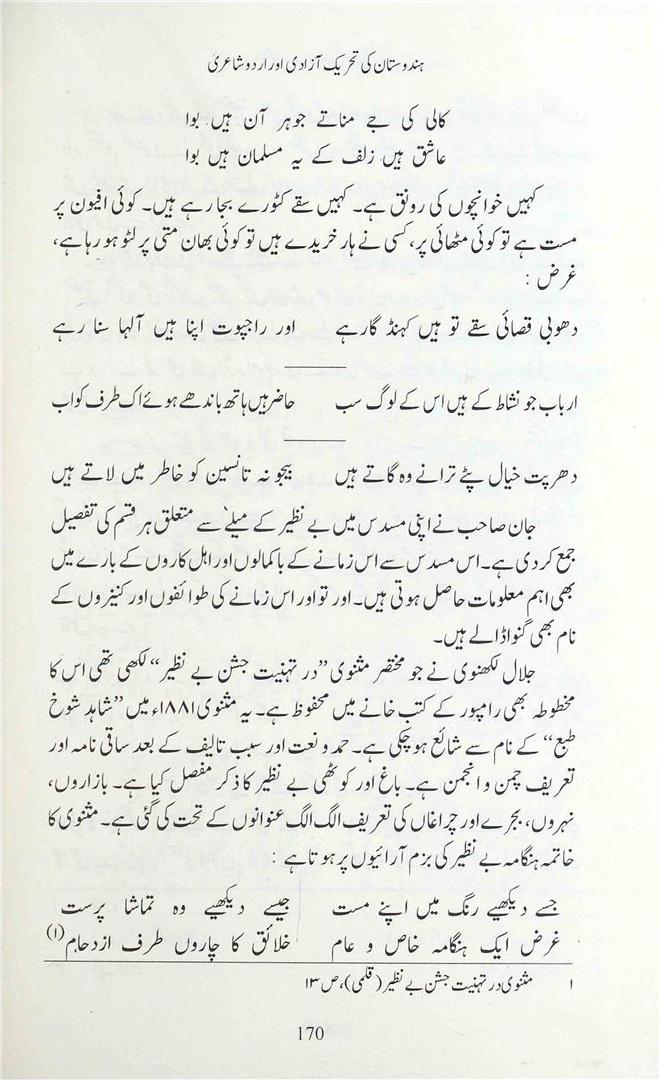 ہندوستان کی تحریک آزادی اور اردو شاعری
کالی کی جے مناتے جوہر آن ہیں بوا
عاشق ہیں زلف کے یہ مسلمان ہیں بوا
کہیں خوانچوں کی رونق ہے۔ کہیں سقے کٹورے بجا رہے ہیں۔ کوئی افیون پر
مست ہے تو کوئی مٹھائی پر، کسی نے ہار خریدے ہیں تو کوئی بھان متی پر لٹو ہو رہا ہے،
غرض :
دھوبی قصائی سقے تو ہیں کہنڈ گارہے اور راجپوت اپنا ہیں آلہا سنا رہے
ارباب جو نشاط کے ہیں اس کے لوگ سب حاضر ہیں ہاتھ باندھے ہوئے اک طرف کو اب
دھرپت خیال پٹے ترانے وہ گاتے ہیں بیجو نہ تانسین کو خاطر میں لاتے ہیں
جان صاحب نے اپنی مسدس میں بے نظیر کے میلے سے متعلق ہر قسم کی تفصیل
جمع کر دی ہے۔ اس مسدس سے اس زمانے کے باکمالوں اور اہل کاروں کے بارے میں
بھی اہم معلومات حاصل ہوتی ہیں۔ اور تو اور اس زمانے کی طوائفوں اور کنیزوں کے
نام بھی گنوا ڈالے ہیں۔
جلال لکھنوی نے جو مختصر مثنوی ”در تہنیت جشن بے نظیر“ لکھی تھی اس کا
مخطوطہ بھی رامپور کے کتب خانے میں محفوظ ہے۔ یہ مثنوی ۱۸۸۱ء میں ”شاہد شوخ
طبع“ کے نام سے شائع ہو چکی ہے۔ حمد و نعت اور سبب تالیف کے بعد ساقی نامہ اور
تعریف چمن و انجمن ہے۔ باغ اور کوٹھی بے نظیر کا ذکر مفصل کیا ہے۔ بازاروں،
نہروں، بجرے اور چراغاں کی تعریف الگ الگ عنوانوں کے تحت کی گئی ہے۔ مثنوی کا
خاتمہ ہنگامہ بے نظیر کی بزم آرائیوں پر ہوتا ہے :
جسے دیکھیے رنگ میں اپنے مست جیسے دیکھیے وہ تماشا پرست
غرض ایک ہنگامہ خاص و عام خلائق کا چاروں طرف ازدحام (۱)
۱ مثنوی در تہنیت جشن بے نظیر (قلمی)، ص ۱۳
170